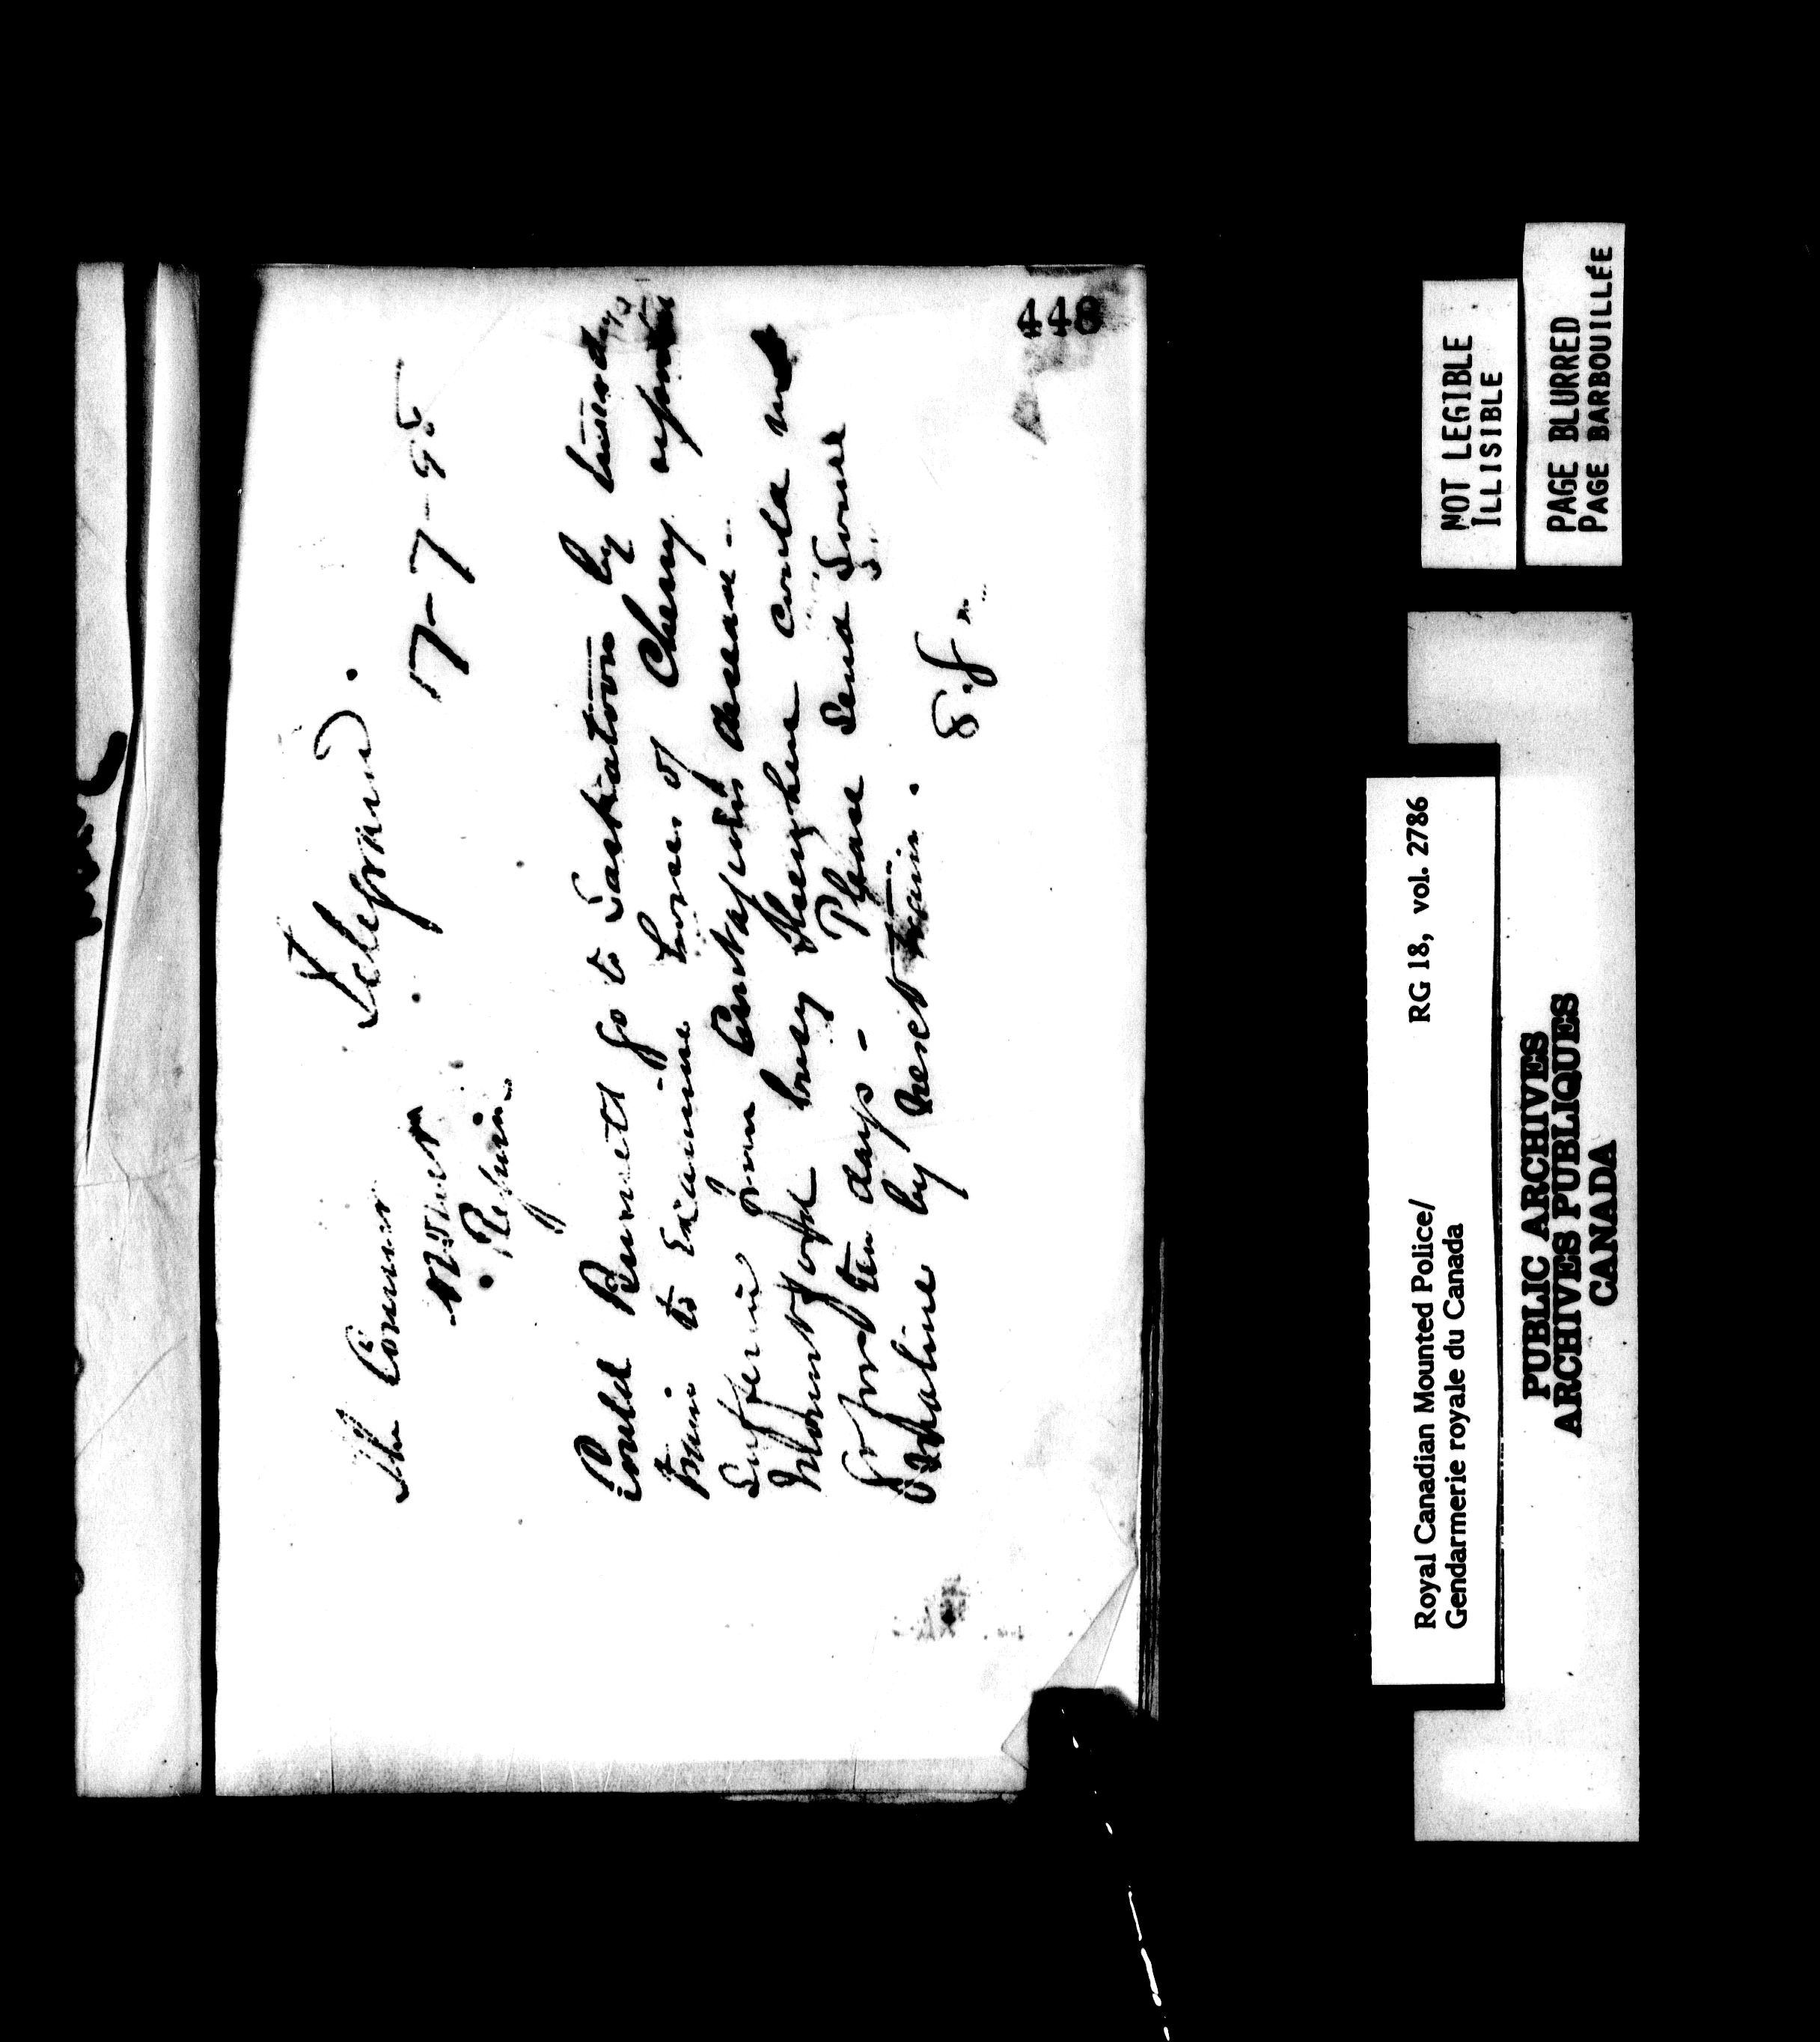 Telegram.
The Commr
NWMP
Regina
17-7-95
Could Burnett go to Saskatoon by tuesdays
train to Examine horses of Cherry
Suffering from Contagious disease.
Mountford busy here could not
go for ten days - Please send some
by next train.
448
NOT LEGIBLE
ILLISIBLE
PAGE BLURRED
PAGE BARBOUILLÉE
Royal Canadian Mounted Police/
Gendarmerie royale du Canada
RG 18, vol. 2786
PUBLIC ARCHIVES
ARCHIVES PUBLIQUES
CANADA